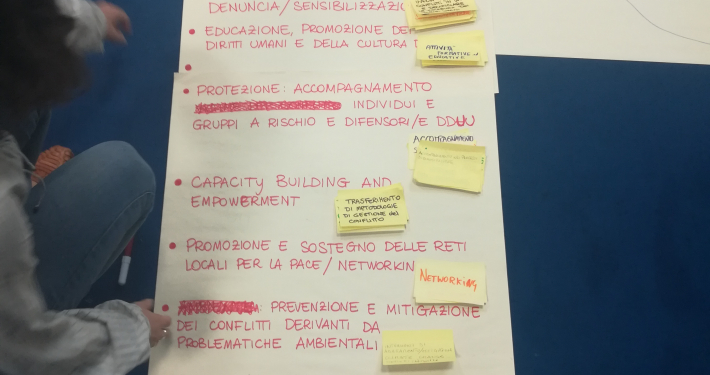 DENUNCIA/SENSIBILIZZAZIO
• EDUCAZIONE, PROMOZIONE DEI
DIRITTI UMANI E DELLA CULTURA D
ATTIVITÀ
FORMATIVE ed
EDUCATIVE
•
• PROTEZIONE: ACCOMPAGNAMENTO
INDIVIDUI E
GRUPPI A RISCHIO E DIFENSORI/E DDUU
ACCOMPAGNAMENTO
• CAPACITY BUILDING AND
EMPOWERMENT
TRASFERIMENTO
DI METODOLOGIE
DI GESTIONE del
CONFLITTO
• PROMOZIONE E SOSTEGNO DELLE RETI
LOCALI PER LA PACE/NETWORKIN
NETWORKING
• : PREVENZIONE E MITIGAZIONE
DEI CONFLITTI DERIVANTI DA
PROBLEMATICHE AMBIENTALI